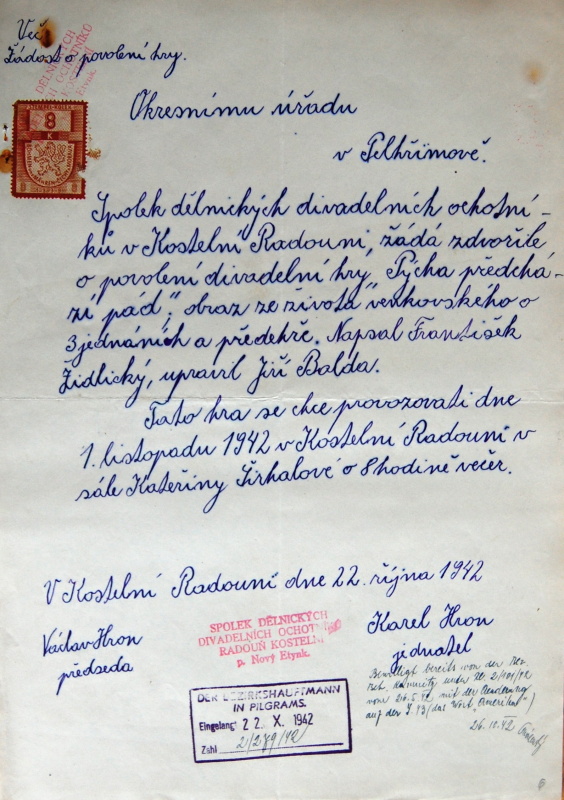 Věc
Žádost o povolení hry.
DĚLNICKÝCH
OCHOTNÍKŮ
8
K
Okresnímu úřadu
v Pelhřimově.
Spolek dělnických divadelních ochotní-
ků v Kostelní Radouni, žádá zdvořile
o povolení divadelní hry "Pýcha předchá-
zí pád", obraz ze života venkovského o
3 jednáních a předehře. Napsal František
Židlický, upravil Jiří Balda.
Tato hra se chce provozovati dne
1. listopadu 1942 v Kostelní Radouni v
sále Kateřiny Šrhalové o 8 hodině večer.
V Kostelní Radouni dne 22. října 1942
Václav Hron
předseda
SPOLEK DĚLNICKÝCH
DIVADELNÍCH OCHOTNÍKŮ
RADOUŇ KOSTELNÍ
p. Nový Etynk.
Karel Hron
jednatel
Bewilligt bereits von der Bez.
beh. Kamnitz unter Zl. 2/
vom 24.5.42, mit der Aenderung
auf der S. 13 (das Wort "Amerika")
26.10.42
DER BEZIRKSHAUPTMANN
IN PILGRAMS.
Eingelangt 22. X. 1942
Zahl 2/279/42